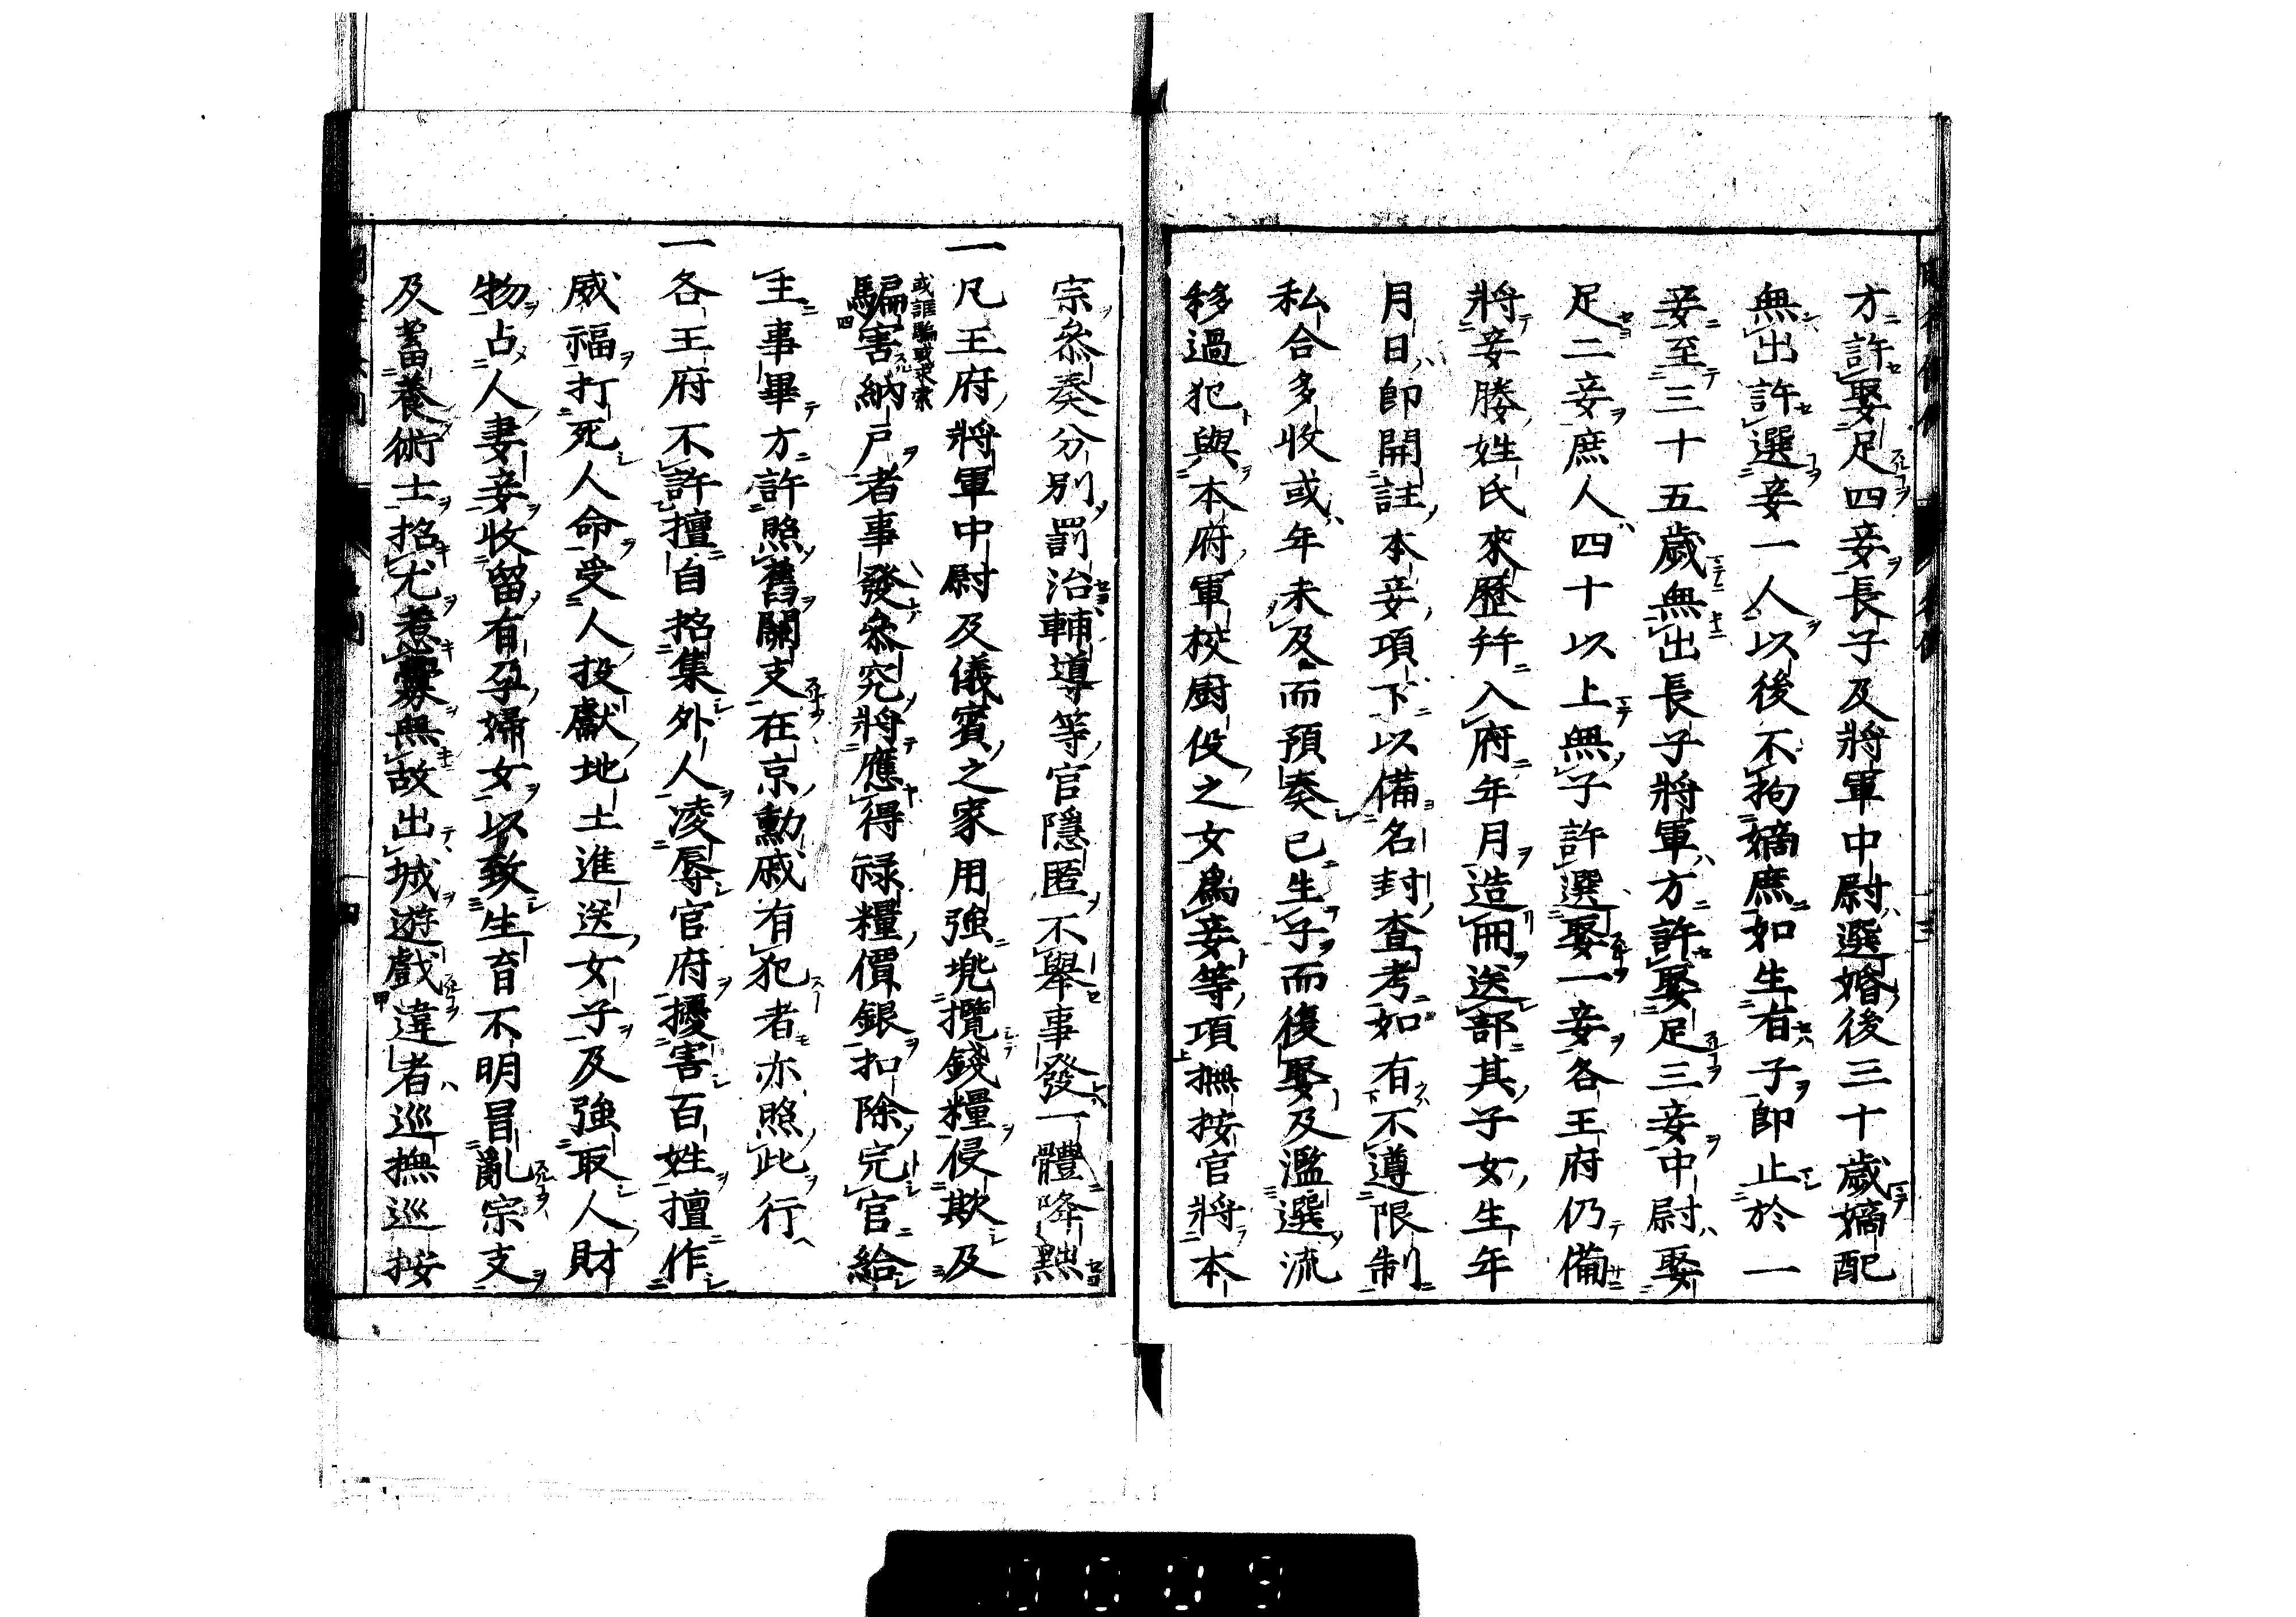 方許娶足四妾長子及將軍中尉選婚後三十歲嫡配
無出許選妾一人以後不拘嫡庶如生有子即止於一
妾至三十五歲無出長子將軍方許娶足三妾中尉娶
足二妾庶人四十以上無子許選娶一妾各王府仍備
將妾媵姓氏來歷幷入府年月造冊送部其子女生年
月日即開註本妾項下以備名封查考如有不遵限制
私合多收或年未及而預奏已生子而後娶及濫選流
移過犯與本府軍校厨役之女爲妾等項撫按官將本
宗叅奏分別罰治輔導等官隱匿不舉事發一體降黜
一凡王府將軍中尉及儀賓之家用強兠攬錢糧侵欺及
或誆騙或求索
騙害納戸者事發叅究將應得禄糧價銀扣除完官給
主事畢方許照舊關支在京勳戚有犯者亦照此行
一各王府不許擅自招集外人凌辱官府擾害百姓擅作
威福打死人命受人投獻地土進送女子及強取人財
物占人妻妾收留有孕婦女以致生育不明冒亂宗支
及畜養術士招尤惹釁無故出城遊戲違者巡撫巡按